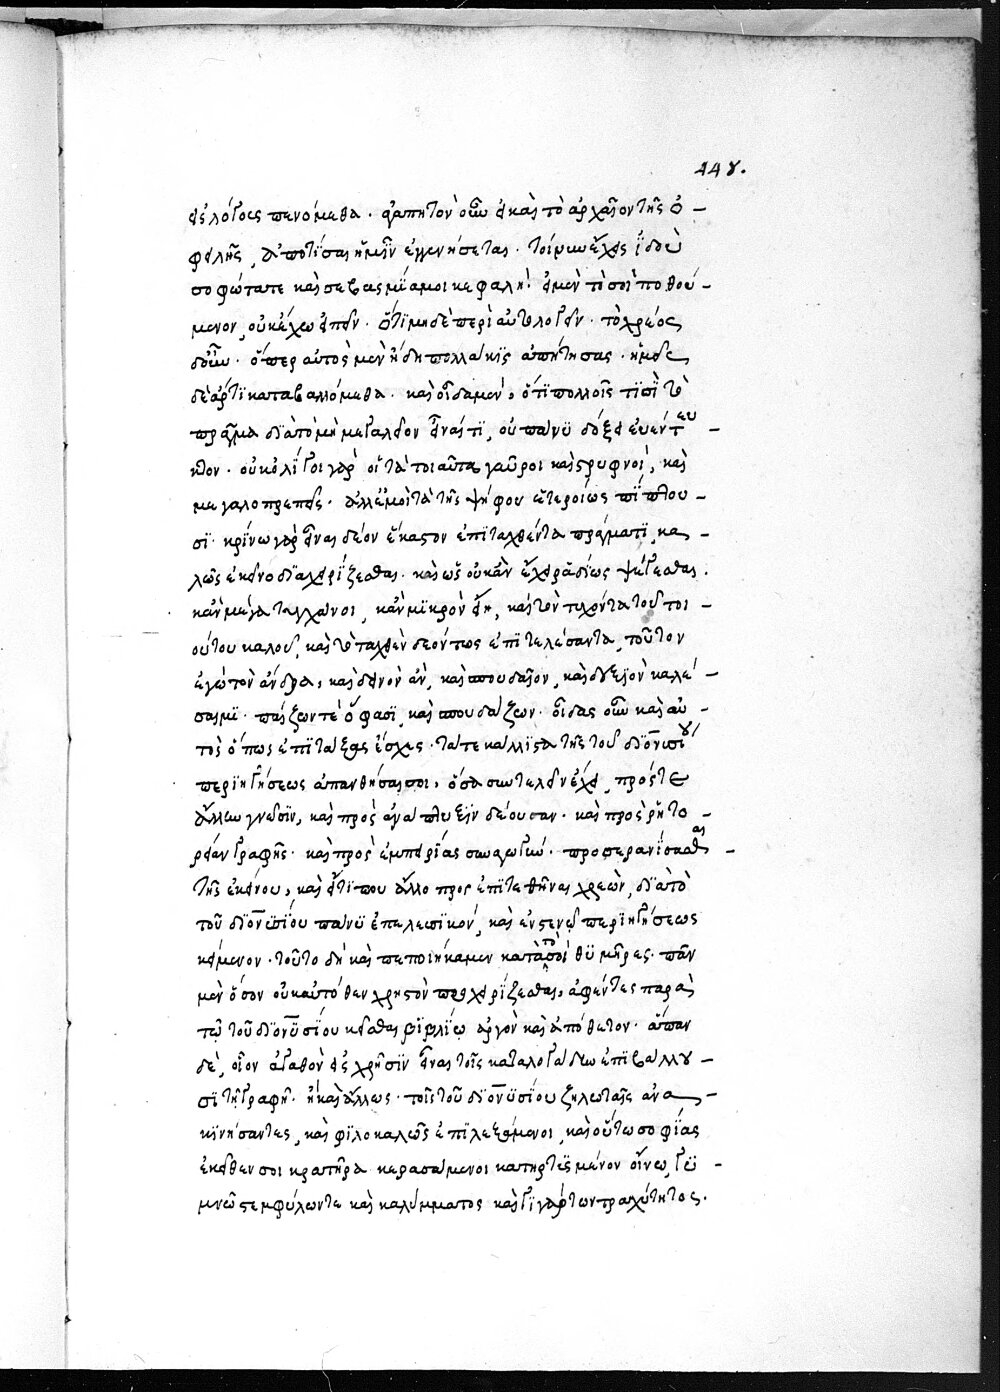 εἰς λόγους πενόμεθα. ἀγαπητὸν οὖν εἰ καὶ τὸ ἀρχαῖον τῆς ὀ-
φειλῆς, ἀποτῖσαι ἡμῖν ἐγγενήσεται. τοίνυν ἔχεις ἰδοὺ
σοφώτατε καὶ σεβασμία μοι κεφαλὴ. εἰ μὲν τὸ σοὶ ποθού-
μενον, οὐκ ἔχω εἰπεῖν. ὅτι μηδὲ περὶ αὐτ λογεῖν. τὸ χρέος
δ' οὖν. ὅπερ αὐτὸς μὲν ἤδη πολλάκις ἀπῄτησας. ἡμεῖς
δὲ ἄρτι καταβαλλόμεθα. καὶ οἴδαμεν, ὅτι πολλοῖς τισὶ τὸ
πρᾶγμα διὰ τὸ μὴ μεγαλεῖον εἶναί τι, οὐ πάνυ δόξει εὐεντευ-
κτον. οὐκ ὀλίγοι γὰρ οἳ τὰ τοιαῦτα γαῦροι καὶ στρυφνοί, καὶ
μεγαλοπρεπεῖς. ἀλλ' ἐμοὶ τὰ τῆς ψήφου ἑτεροίως πίπτου-
σι. κρίνω γὰρ εἶναι δέον ἕκαστον ἐπιταχθέντα πράγματι, κα-
λῶς ἐκεῖνο διαχειρίζεσθαι. καὶ ὡς οὐκ ἂν ἔχει ῥᾳδίως ψέγεσθαι.
κἂν μέγα τυγχάνοι, κἂν μικρὸν εἴη, καὶ τὸν τυχόντα τοῦ τοι-
ούτου καλοῦ, καὶ τὸ ταχθὲν δεόντως ἐπιτελέσαντα, τοῦτον
ἐγὼ τὸν ἄνδρα, καὶ δεινὸν ἂν, καὶ σπουδαῖον, καὶ δεξιὸν καλέ-
σαιμι. παίζων τὲ ὅ φασι, καὶ σπουδάζων. οἶδας οὖν καὶ αὐ-
τὸς ὅπως ἐπιτάξας ἔσχες. τά τε κάλλιστα τῆς τοῦ διονυσίου
περιηγήσεως ἀπανθήσασθαι, ὅσα συντελεῖν ἔχει, πρός τε
ἄλλων γνῶσιν, καὶ πρὸς ἀνάπτυξιν δέουσαν. καὶ πρὸς ῥητο-
ρείαν γραφῆς. καὶ πρὸς ἐμπειρίας συναγωγήν. προσερανίσασθαι
τῆς ἐκείνου, καὶ εἴ τί που ἄλλο προσεπιτεθῆναι χρεὼν, διὰ τὸ
τοῦ διονυσίου πάνυ ἐπελευστικόν, καὶ ἐν στενῷ περιηγήσεως
κείμενον. τοῦτο δὴ καὶ πεποιήκαμεν κατὰ τὸ σοὶ θυμῆρες. πᾶν
μὲν ὅσον οὐκ αὐτόθεν χρηστὸν προχειρίζεσθαι, ἀφέντες παρὰ
τῷ τοῦ διονυσίου κεῖσθαι βιβλίῳ ἀργὸν καὶ ἀπόθετον. ἅπαν
δὲ, οἷον ἀγαθὸν εἰς χρῆσιν εἶναι τοῖς καταλογάδην ἐπιβάλλου-
σι τῇ γραφῇ. ἢ καὶ ἄλλως. τοῖς τοῦ διονυσίου ζηλωταῖς ἀνα-
κινήσαντες, καὶ φιλοκάλως ἐπιλεξάμενοι, καὶ οὕτω σοφίας
ἐκεῖθεν σοι κρατῆρα κερασάμενοι κατηρτισμένον οἴνῳ, γυ-
μνῷ στεμφύλων τε καὶ καλύμματος καὶ γιγάρτων τραχύτητος.